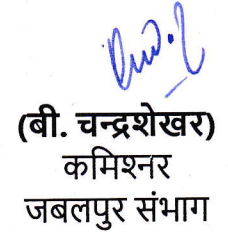 (बी. चन्द्रशेखर)
कमिश्नर
जबलपुर संभाग